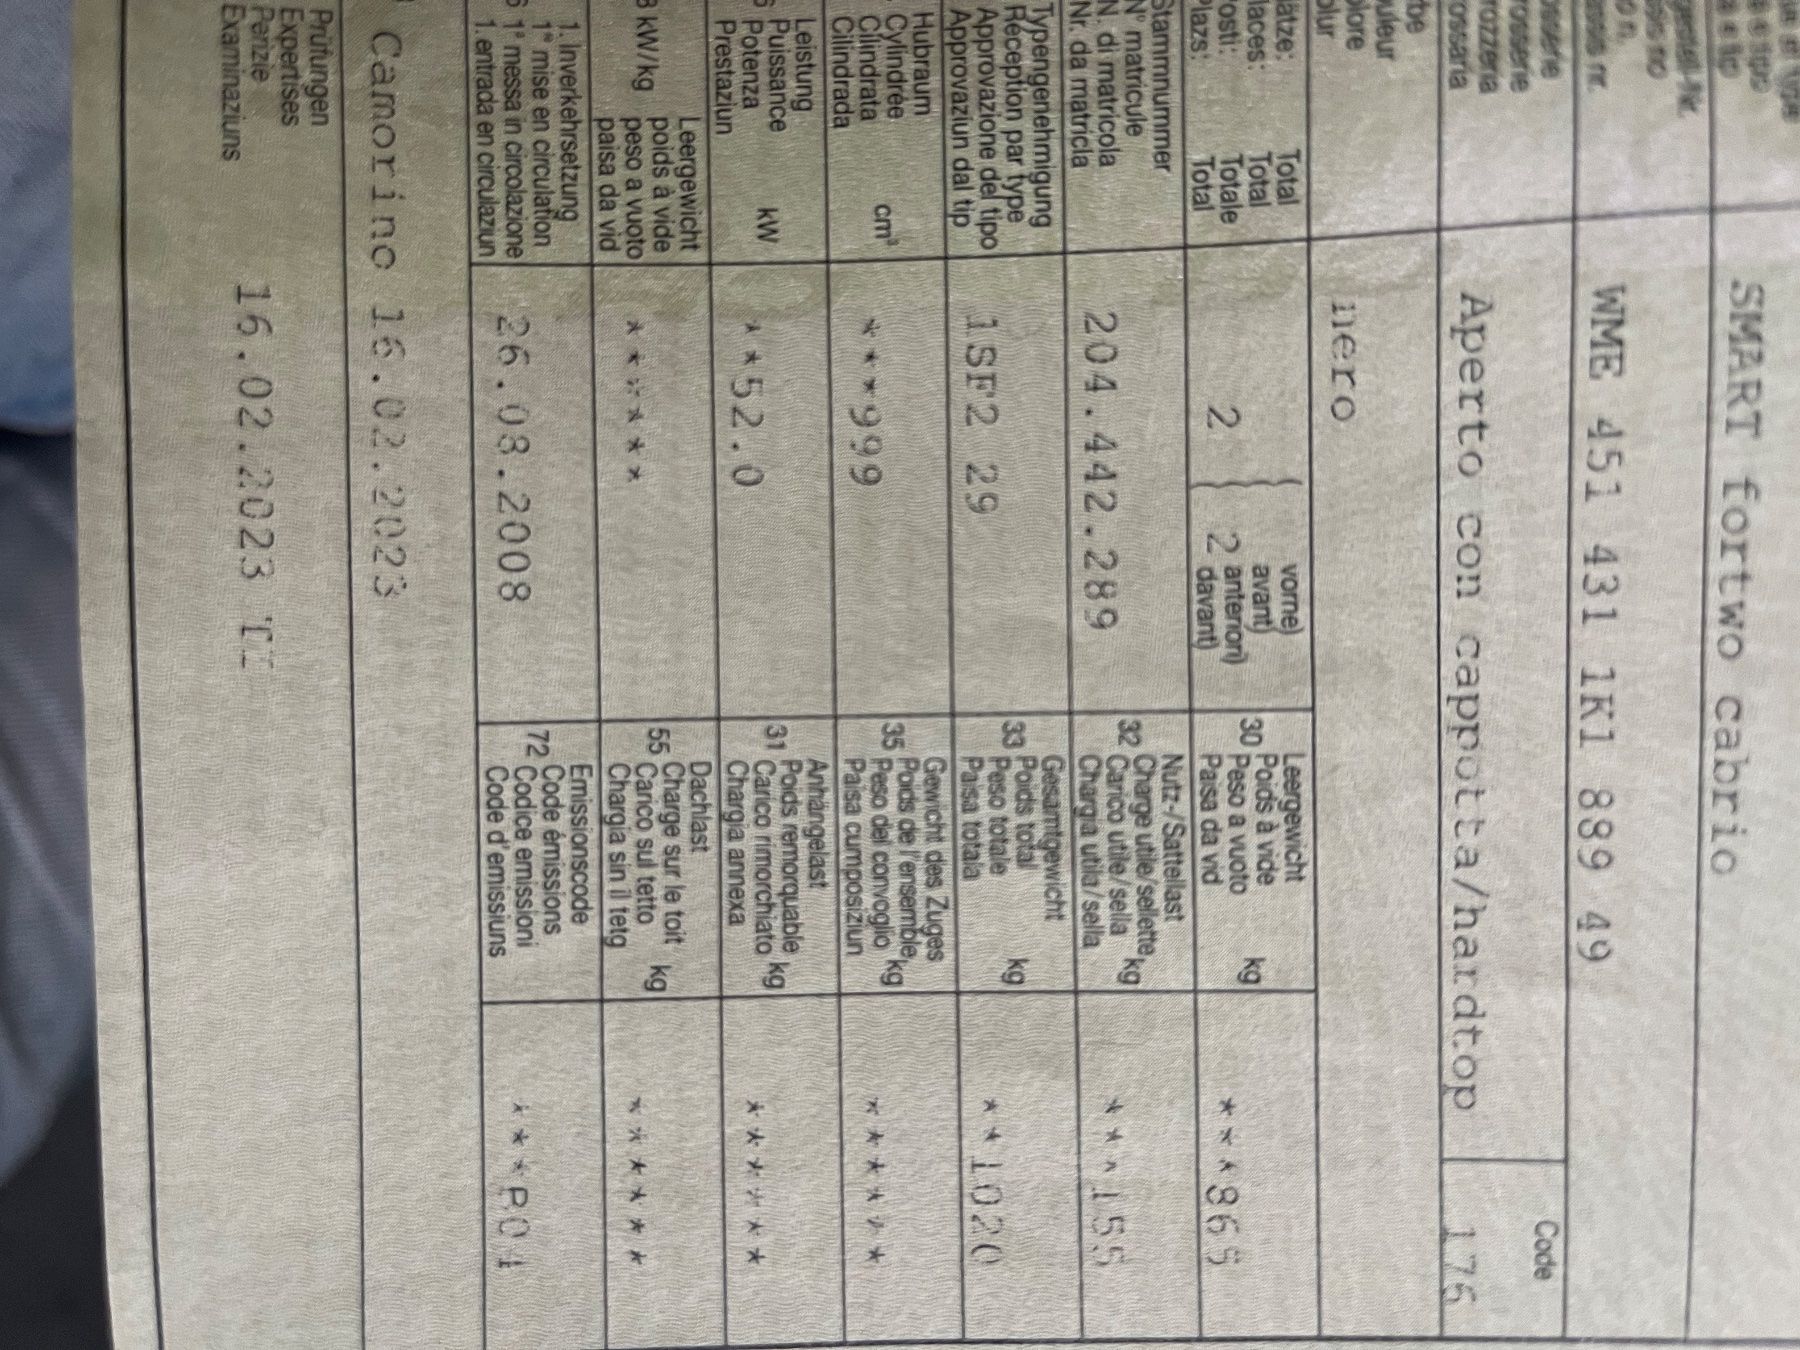 SMART fortwo cabrio
WME 451 431 1K1 889 49
Aperto con cappotta/hardtop
Code
176
nero
Total
Total
Totale
Total
2
2
vorne)
avant)
anteriori)
davant)
Leergewicht
30 Poids à vide
Peso a vuoto kg
Paisa da vid
***865
Stammnummer
N° matricule
N. di matricola
Nr. da matricla
204.442.289
Nutz-/Sattellast
32 Charge utile/sellette kg
Carico utile/sella
Chargia utila/sella
***155
Typengenehmigung
Réception par type
Approvazione del tipo
Approvaziun dal tip
1SF2 29
Gesamtgewicht
33 Poids total
Peso totale kg
Paisa totala
**1020
Hubraum
Cylindrée
Cilindrata cm³
Cilindrada
***999
Gewicht des Zuges
35 Poids de l'ensemble kg
Peso del convoglio
Paisa cumposiziun
******
Leistung
Puissance
Potenza kW
Prestaziun
**52.0
Anhängelast
31 Poids remorquable kg
Carico rimorchiato
Chargia annexa
******
Leergewicht
poids à vide
kW/kg peso a vuoto
paisa da vid
******
Dachlast
55 Charge sur le toit
Carico sul tetto kg
Chargia sin il tetg
******
1. Inverkehrsetzung
1re mise en circulation
1a messa in circolazione
1. entrada en circulaziun
26.08.2008
Emissionscode
72 Code émissions
Codice emissioni
Code d'emissiuns
***B04
Camorino 16.02.2023
Prüfungen
Expertises
Perizie
Examinaziuns
16.02.2023 TI